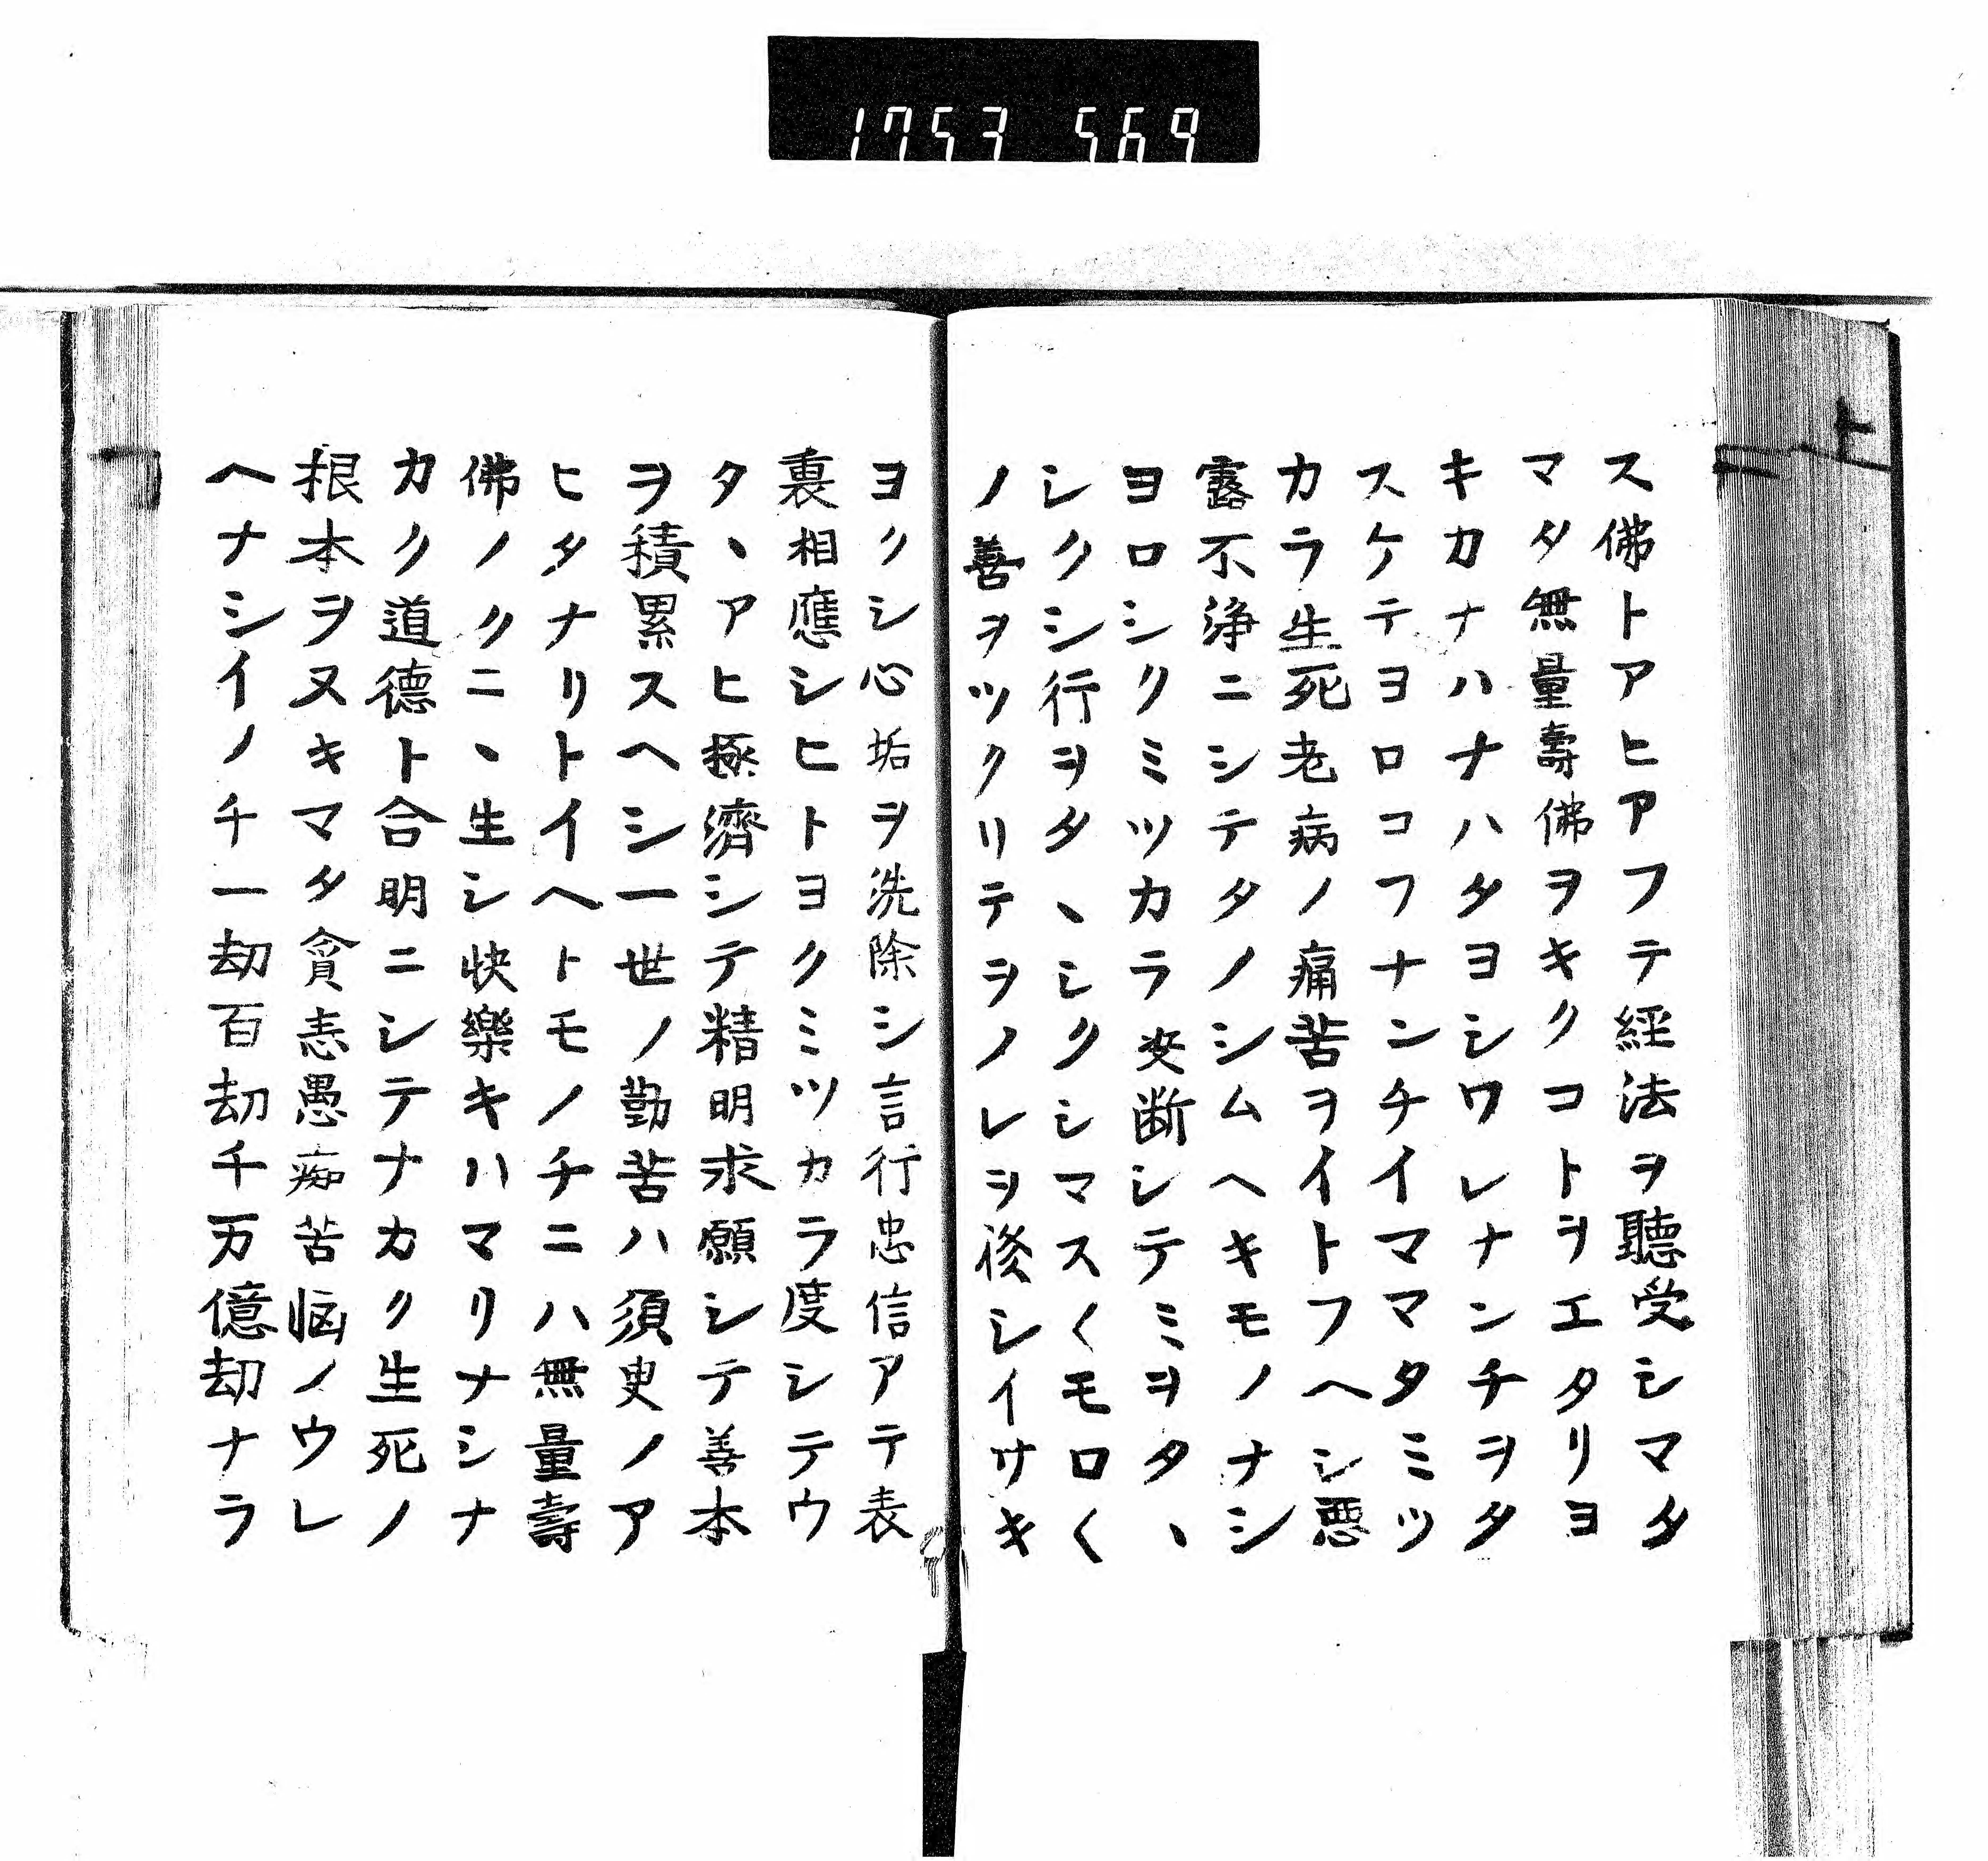 1753 569
上
ス佛トアヒアフテ経法ヲ聽受シマタ
マタ無量壽佛ヲキクコトヲエタリヨ
キカナハナハタヨシワレナンチヲタ
スケテヨロコフナンチイママタミツ
カラ生死老病ノ痛苦ヲイトフヘシ悪
露不浄ニシテタノシムヘキモノナシ
ヨロシクミツカラ決断シテミヲタヽ
シクシ行ヲタヽシクシマス〱モロ〱
ノ善ヲツクリテヲノレヲ後シイサキ
ヨクシ心垢ヲ洗除シ言行忠信アテ表
裏相應シヒトヨクミツカラ度シテウ
タヽアヒ極濟シテ精明求願シテ善本
ヲ積累スヘシ一世ノ勤苦ハ須臾ノア
ヒタナリトイヘトモノチニハ無量壽
佛ノクニヽ生シ快樂キハマリナシナ
カク道德ト合明ニシテナカク生死ノ
根本ヲヌキマタ貪恚愚痴苦悩ノウレ
ヘナシイノチ一劫百劫千万億劫ナラ